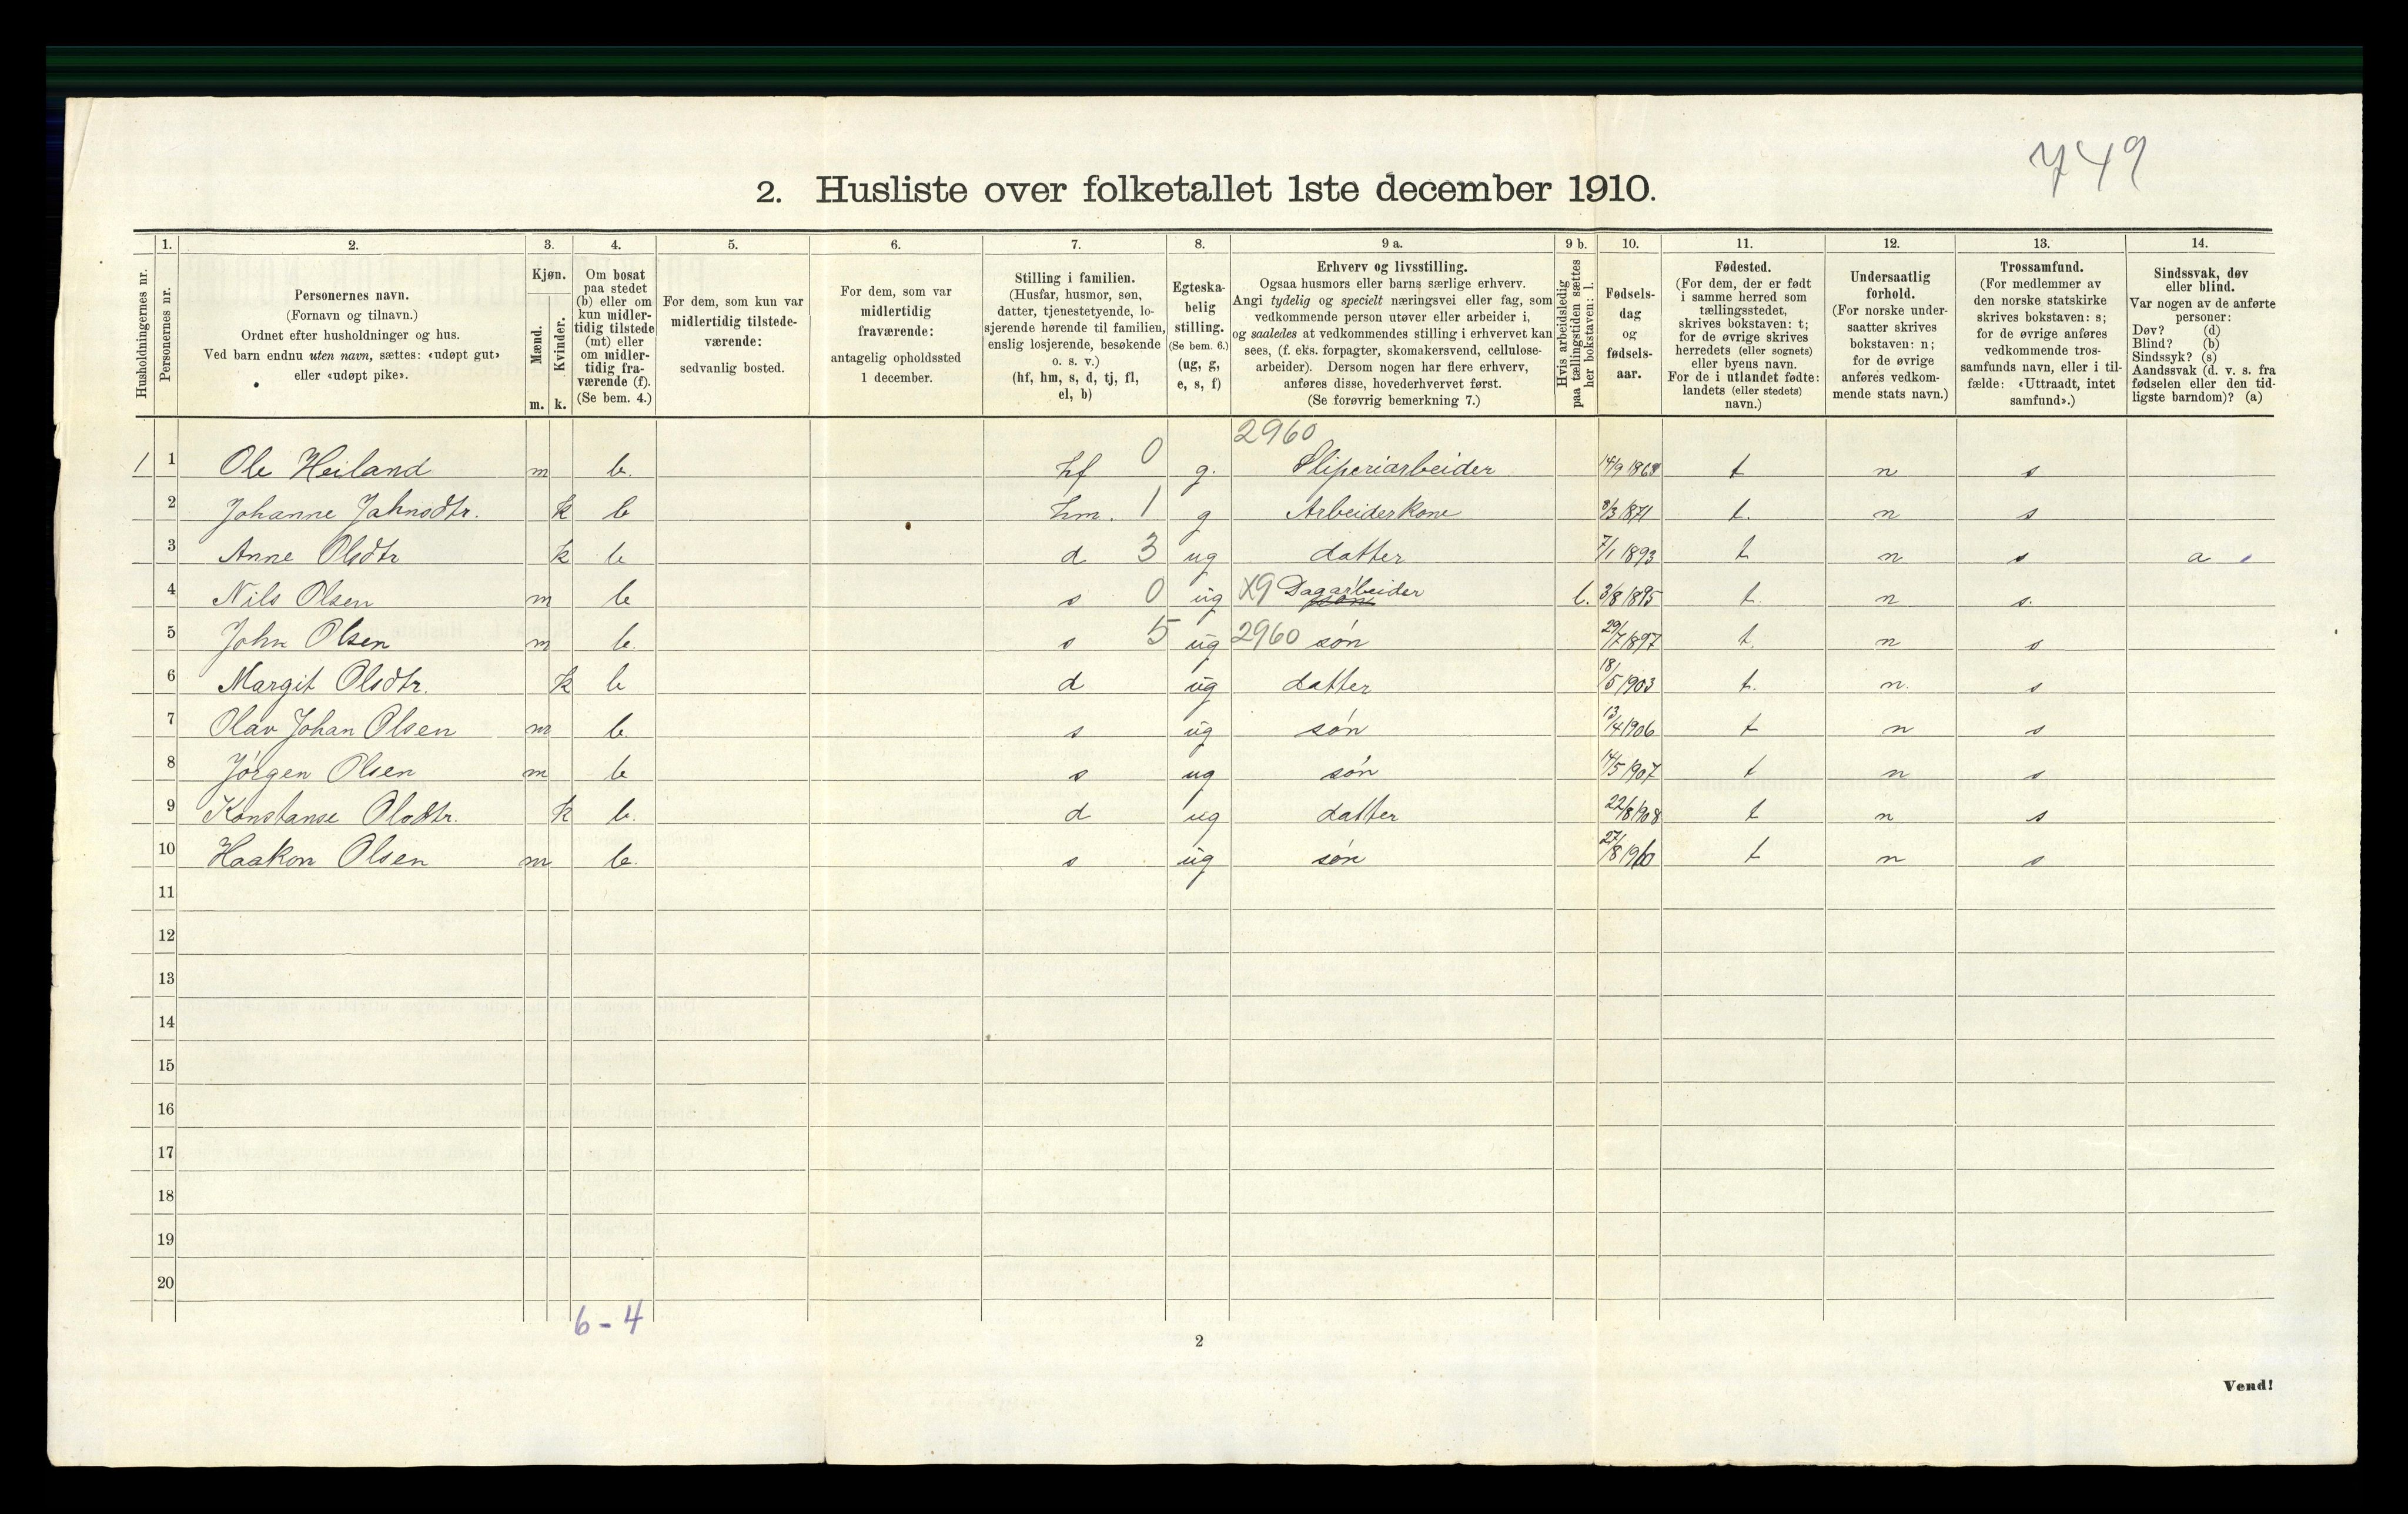 749
2. Husliste over folketallet 1ste december 1910.
1. 2. 3. 4. 5. 6. 7. 8. 9 a. 9 b. 10. 11. 12. 13. 14.
Husholdningernes nr.
Personernes nr.
Personernes navn.
(Fornavn og tilnavn.)
Ordnet efter husholdninger og hus.
Ved barn endnu uten navn, sættes: «udøpt gut»
eller «udøpt pike».
Kjøn.
Mænd.
Kvinder.
m. k.
Om bosat
paa stedet
(b) eller om
kun midler-
tidig tilstede
(mt) eller
om midler-
tidig fra-
værende (f).
(Se bem. 4.)
For dem, som kun var
midlertidig tilstede-
værende:
sedvanlig bosted.
For dem, som var
midlertidig
fraværende:
antagelig opholdssted
1 december.
Stilling i familien.
(Husfar, husmor, søn,
datter, tjenestetyende, lo-
sjerende hørende til familien,
enslig losjerende, besøkende
o. s. v.)
(hf, hm, s, d, tj, fl,
el, b)
Egteska-
belig
stilling.
(Se bem. 6.)
(ug, g,
e, s, f)
Erhverv og livsstilling.
Ogsaa husmors eller barns særlige erhverv.
Angi tydelig og specielt næringsvei eller fag, som
vedkommende person utøver eller arbeider i,
og saaledes at vedkommendes stilling i erhvervet kan
sees, (f. eks. forpagter, skomakersvend, cellulose-
arbeider). Dersom nogen har flere erhverv,
anføres disse, hovederhvervet først.
(Se forøvrig bemerkning 7.)
Hvis arbeidsledig
paa tællingstiden sættes
her bokstaven: l.
Fødsels-
dag
og
fødsels-
aar.
Fødested.
(For dem, der er født
i samme herred som
tællingsstedet,
skrives bokstaven: t;
for de øvrige skrives
herredets (eller sognets)
eller byens navn.
For de i utlandet fødte:
landets (eller stedets)
navn.)
Undersaatlig
forhold.
(For norske under-
saatter skrives
bokstaven: n;
for de øvrige
anføres vedkom-
mende stats navn.)
Trossamfund.
(For medlemmer av
den norske statskirke
skrives bokstaven: s;
for de øvrige anføres
vedkommende tros-
samfunds navn, eller i til-
fælde: «Uttraadt, intet
samfund».)
Sindssvak, døv
eller blind.
Var nogen av de anførte
personer:
Døv? (d)
Blind? (b)
Sindssyk? (s)
Aandssvak (d. v. s. fra
fødselen eller den tid-
ligste barndom)? (a)
2960
1 1 Ole Heiland m b. hf 0 g. Sliperiarbeider 14/9 t n s
2 Johanne Jahnsdtr. k b hm. 1 g Arbeiderkone 8/3 1871 t. n s
3 Anne Olsdtr k b d 3 ug datter 7/1 1893 t n s a
4 Nils Olsen m b s 0 ug X9 Dagarbeider søn l. 3/8 1895 t. n s.
5 John Olsen m b. s 5 ug 2960 søn 29/7 1897 t. n s
6 Margit Olsdtr. k b d ug datter 18/5 1903 t. n. s
7 Olav Johan Olsen m b s ug søn 13/4 1906 t n s
8 Jörgen Olsen m b s ug søn 14/5 1907 t n s
9 Konstanse Olsdtr. k b. d ug datter 22/8 1908 t n s
10 Haakon Olsen m b. s ug søn 27/8 1910 t n s
11
12
13
14
15
16
17
18
19
20
6-4
2
Vend!